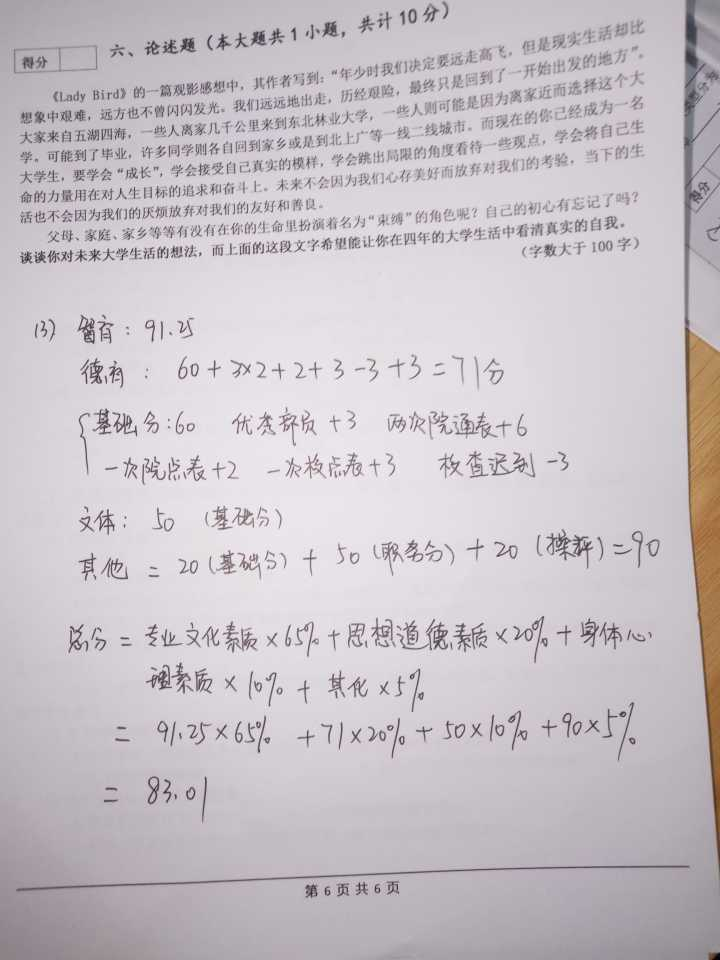 得分
六、论述题（本大题共1小题，共计10分）
《Lady Bird》的一篇观影感想中，其作者写到：“年少时我们决定要远走高飞，但是现实生活却比
想象中艰难，远方也不曾闪闪发光。我们远远地出走，历经艰险，最终只是回到了一开始出发的地方”。
大家来自五湖四海，一些人离家几千公里来到东北林业大学，一些人则可能是因为离家近而选择这个大
学。可能到了毕业，许多同学则各自回到家乡或是到北上广等一线二线城市。而现在的你已经成为一名
大学生，要学会“成长”，学会接受自己真实的模样，学会跳出局限的角度看待一些观点，学会将自己生
命的力量用在对人生目标的追求和奋斗上。未来不会因为我们心存美好而放弃对我们的考验，当下的生
活也不会因为我们的厌烦放弃对我们的友好和善良。
父母、家庭、家乡等等有没有在你的生命里扮演着名为“束缚”的角色呢？自己的初心有忘记了吗？
谈谈你对未来大学生活的想法，而上面的这段文字希望能让你在四年的大学生活中看清真实的自我。
（字数大于100字）
得分
(3) 智育：91.25
德育：60+3×2+2+3-3+3=71分
基础分：60 优秀部员+3 两次院通表+6
一次院点表+2 一次校点表+3 校查迟到-3
文体：50（基础分）
其他=20（基础分）+50（职务分）+20（操评）=90
总分=专业文化素质×65%+思想道德素质×20%+身体心
理素质×10%+其他×5%
=91.25×65%+71×20%+50×10%+90×5%
=83.01
第6页共6页